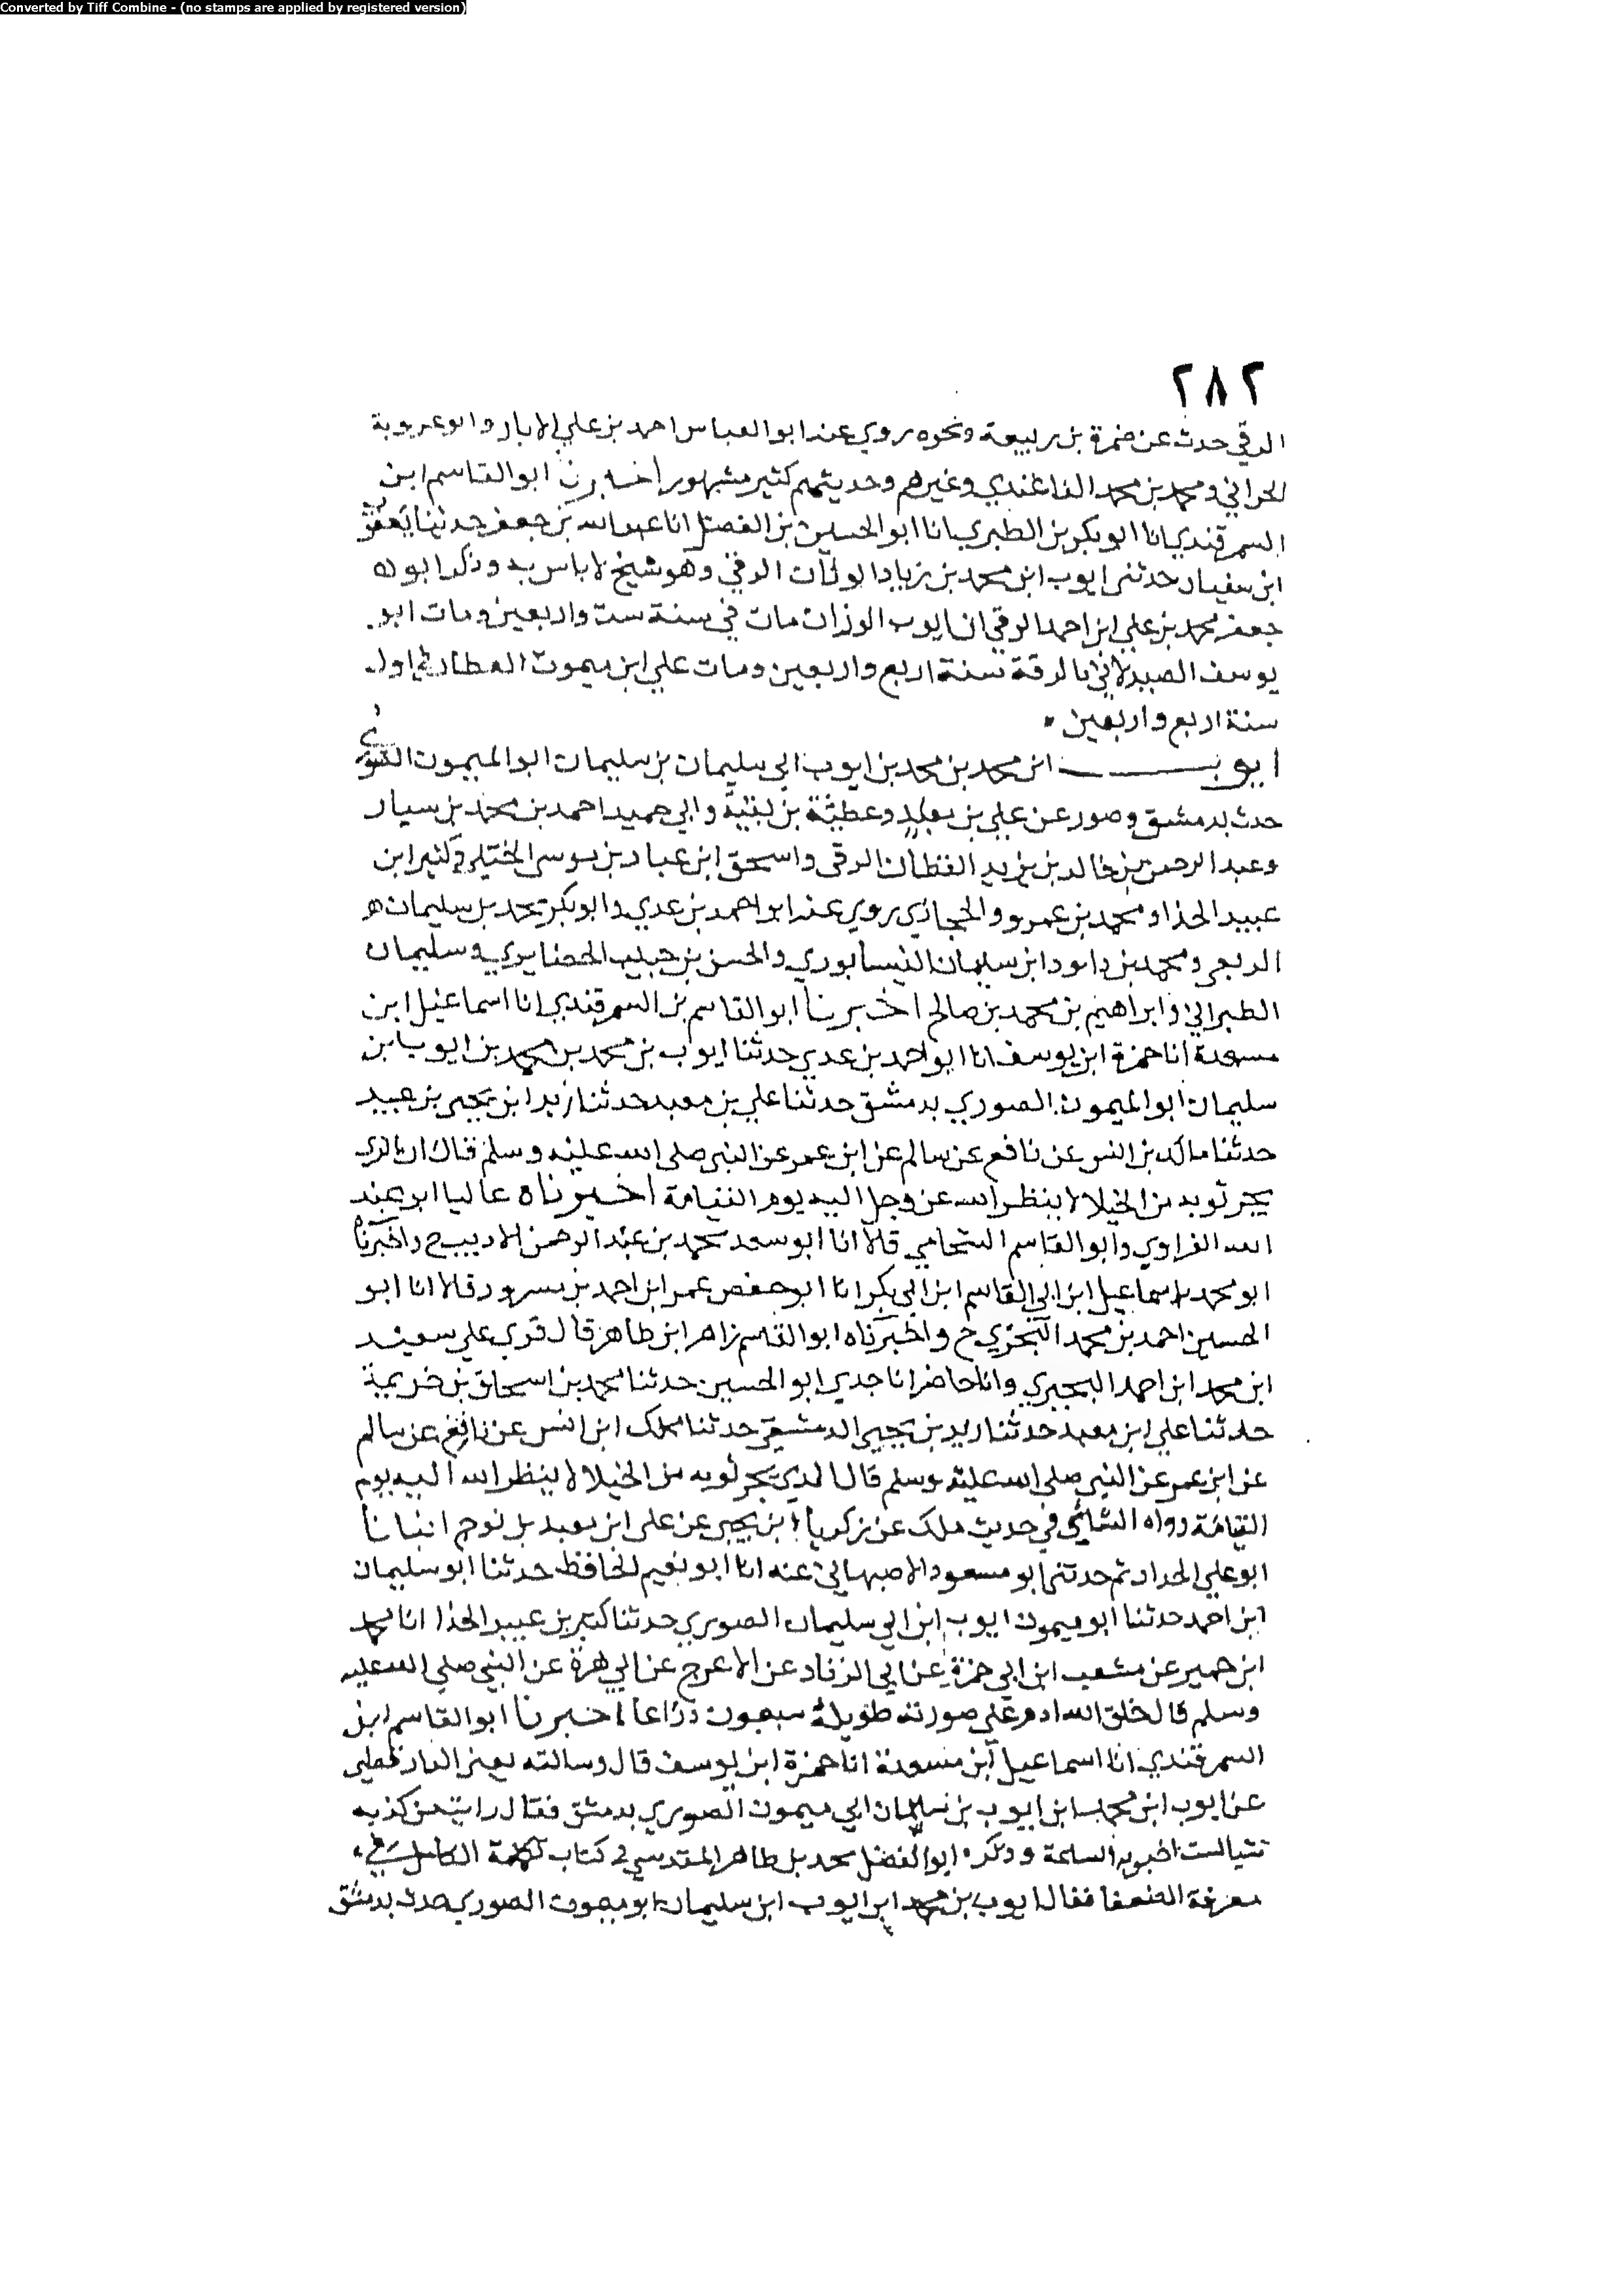 Converted by Tiff Combine - (no stamps are applied by registered version)
٢٨٢
الرقي حدث عن ضمرة بن ربيعة ونحوه روي عنه ابو العباس احمد بن علي الابار وابو عروبة
الحراني ومحمد بن محمد الباغندي وغيرهم وحديثهم كثير مشهور اخبرنا ابو القاسم ابن
السمرقندي انا ابو بكر بن الطبري انا ابو الحسين بن الفضل انا عبد الله بن جعفر حدثنا يعقوب
ابن سفيان حدثني ايوب ابن محمد بن زياد الوزان الرقي وهو شيخ لا باس به وذكر ابو
جعفر محمد بن علي ابن احمد الرقي ان ايوب الوزان مات في سنة ست واربعين ومات ابو
يوسف الصيدلاني بالرقة سنة اربع واربعين ومات علي ابن ميمون العطار في اول
سنة اربع واربعين
ايوب ابن محمد بن محمد بن ايوب ابي سليمان بن سليمان ابو الميمون الصوري
حدث بدمشق وصور عن علي بن معبد وعطية بن بقية وابي حميد احمد بن محمد بن سيار
وعبد الرحمن بن خالد بن يزيد القطان الرقي واسحق ابن عباد بن موسى الختلي وكثير ابن
عبيد الحذا ومحمد بن عمرو والحجازي روي عنه ابو احمد بن عدي وابو بكر محمد بن سليمان
الربعي ومحمد بن داود ابن سليمان النيسابوري والحسن بن حبيب الحصايري وسليمان
الطبراني وابراهيم بن محمد بن صالح اخبرنا ابو القاسم بن السمرقندي انا اسماعيل ابن
مسعدة انا حمزة ابن يوسف انا ابو احمد بن عدي حدثنا ايوب بن محمد بن محمد بن ايوب ابن
سليمان ابو الميمون الصوري بدمشق حدثنا علي بن معبد حدثنا زيد ابن يحيى بن عبيد
حدثنا مالك بن انس عن نافع عن سالم عن ابن عمر عن النبي صلى الله عليه وسلم قال ان الذي
يجر ثوبه من الخيلا لا ينظر الله عز وجل اليه يوم القيامة اخبرناه عاليا ابو عبد
الله الفراوي وابو القاسم الشحامي قالا انا ابو سعد محمد بن عبد الرحمن الاديب ح واخبرناه
ابو محمد اسماعيل ابن ابي القاسم ابن ابي بكر انا ابو حفص عمر ابن احمد بن مسرور قالا انا ابو
الحسين احمد بن محمد البحيري ح واخبرناه ابو القاسم زاهر ابن طاهر قال قري علي سعيد
ابن محمد ابن احمد البحيري وانا حاضر انا جدي ابو الحسين حدثنا محمد بن اسحاق بن خزيمة
حدثنا علي ابن معبد حدثنا زيد بن يحيى الدمشقي حدثنا ملك ابن انس عن نافع عن سالم
عن ابن عمر عن النبي صلى الله عليه وسلم قال الذي يجر ثوبه من الخيلا لا ينظر الله اليه يوم
القيامة رواه النسائي في حديث ملك عن زكريا ابن يحيى عن علي ابن معبد بن نوح انبانا
ابو علي الحداد ثم حدثني ابو مسعود الاصبهاني عنه انا ابو نعيم الحافظ حدثنا ابو سليمان
ابن احمد حدثنا ابو ميمون ايوب ابن ابي سليمان الصوري حدثنا كثير بن عبيد الحذا انا محمد
ابن حمير عن مشعب ابن ابي حمزة عن ابي الزناد عن الاعرج عن ابي هرة عن النبي صلى الله عليه
وسلم قال خلق الله ادم على صورته طويلة سبعون ذراعا اخبرنا ابو القاسم ابن
السمرقندي انا اسماعيل ابن مسعدة انا حمزة ابن يوسف قال وسالته يعني الدارقطني
عن ايوب ابن محمد ابن ايوب بن سليمان ابي ميمون الصوري بدمشق فقال رايت من كذبه
وذكره ابو الفضل محمد بن طاهر المقدسي في كتاب تكملة الكامل في
معرفة الضعفا فقال ايوب بن محمد ابن ايوب ابن سليمان ابو ميمون الصوري حدث بدمشق